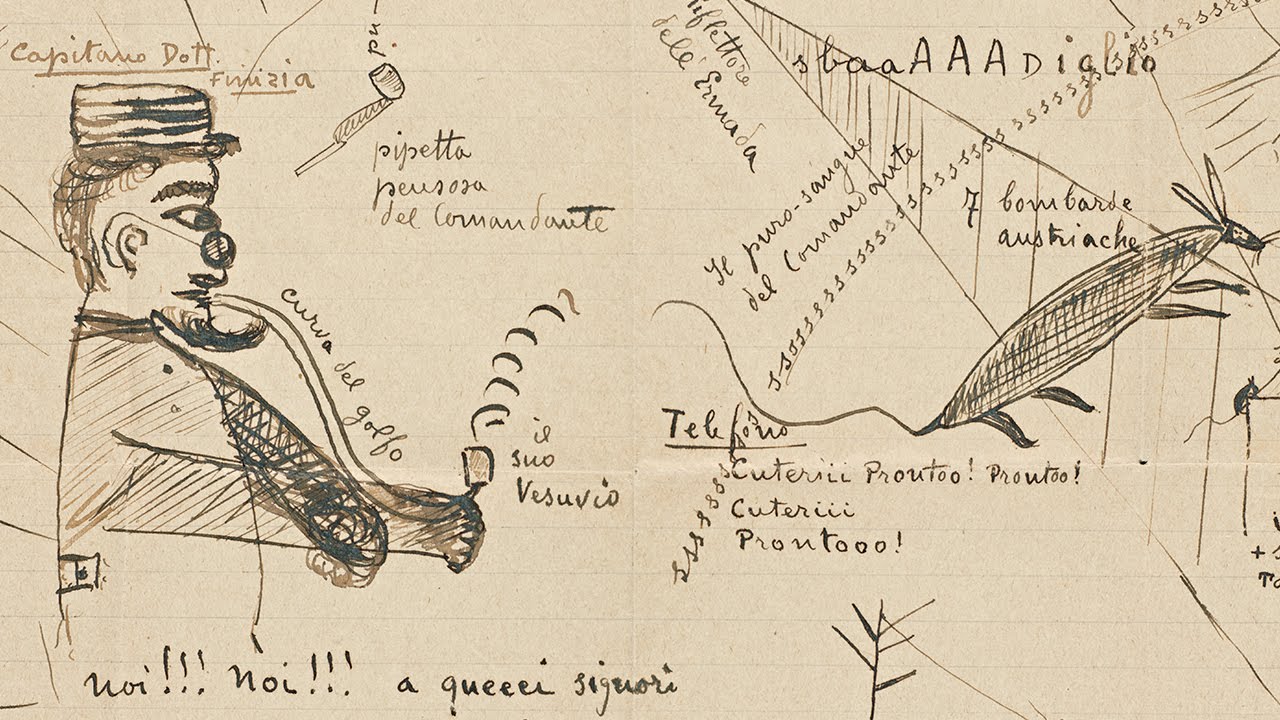 Capitano Dott.
Finizia
pu
pipetta
pensosa
del Comandante
curva del golfo
il
suo
Vesuvio
noi!!! noi!!! a queeei signori
riflettore
dell'Ermada
sbaaAAADiglio
Il puro-sangue
del Comandante
sssssssssssssssssssssssssssssss
7 bombarde
austriache
Telefono
Cuteriii Prontoo! Prontoo!
Cuteriii
Prontooo!